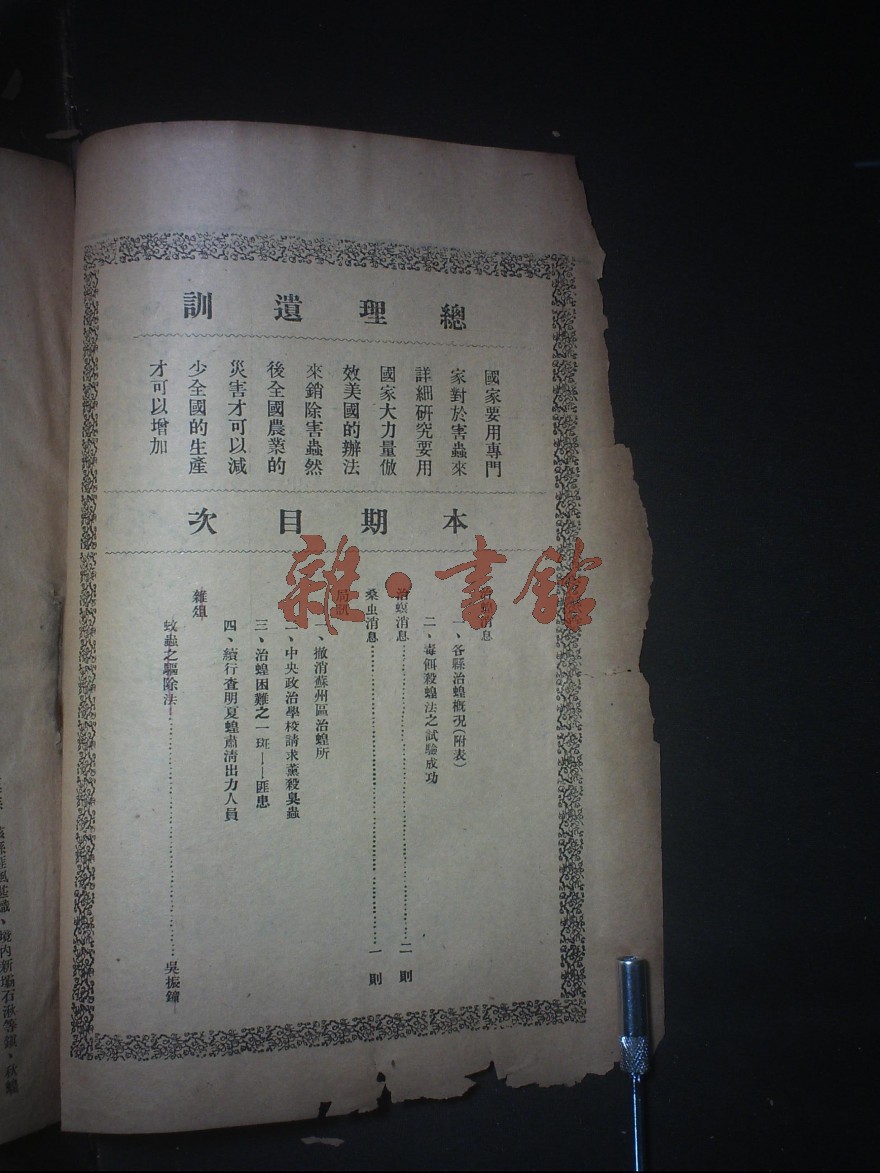 總理遺訓
國家要用專門
家對於害蟲來
詳細硏究要用
國家大力量倣
效美國的辦法
來銷除害蟲然
後全國農業的
災害才可以減
少全國的生產
才可以增加
本期目次
消息
一、各縣治蝗概況(附表)
二、毒餌殺蝗法之試驗成功
治螟消息……二則
桑虫消息……一則
局訊
一、撤消蘇州區治蝗所
二、中央政治學校請求薰殺臭蟲
三、治蝗困難之一斑——匪患
四、續行查明夏蝗肅清出力人員
雜俎
蚊蟲之驅除法……吳振鐘
境內新壩石湫等鎮、秋蝗
雜·書館